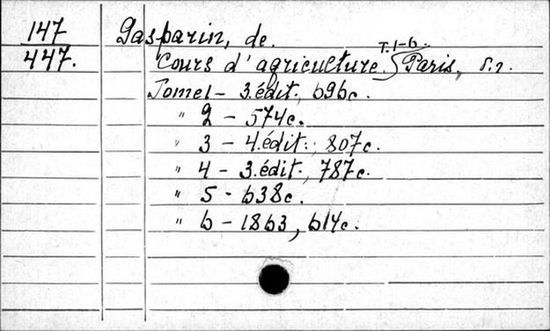 147 Gasparin, de.
447. Cours d'agriculture. T. 1-6. Paris, s.a.
Tome 1 - 3. édit., 696 c.
" 2 - 574 c.
" 3 - 4. édit., 807 c.
" 4 - 3. édit., 787 c.
" 5 - 638 c.
" 6 - 1863, 614 c.